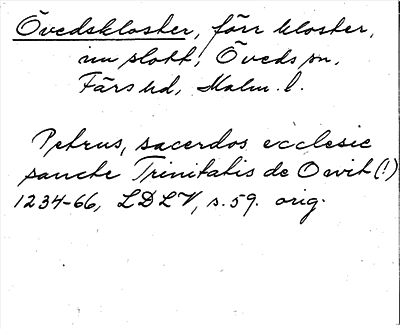 Övedskloster, förr kloster,
nu slott, Öveds sn,
Färs hd, Malm. l.
Petrus, sacerdos ecclesie
sancte Trinitatis de Owit (!)
1234-66, LDLV, s. 59. orig.